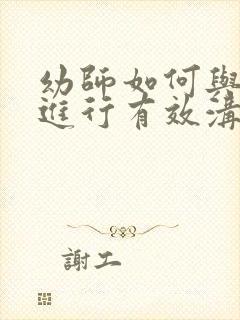 幼師如何與
進行有效溝
謝工